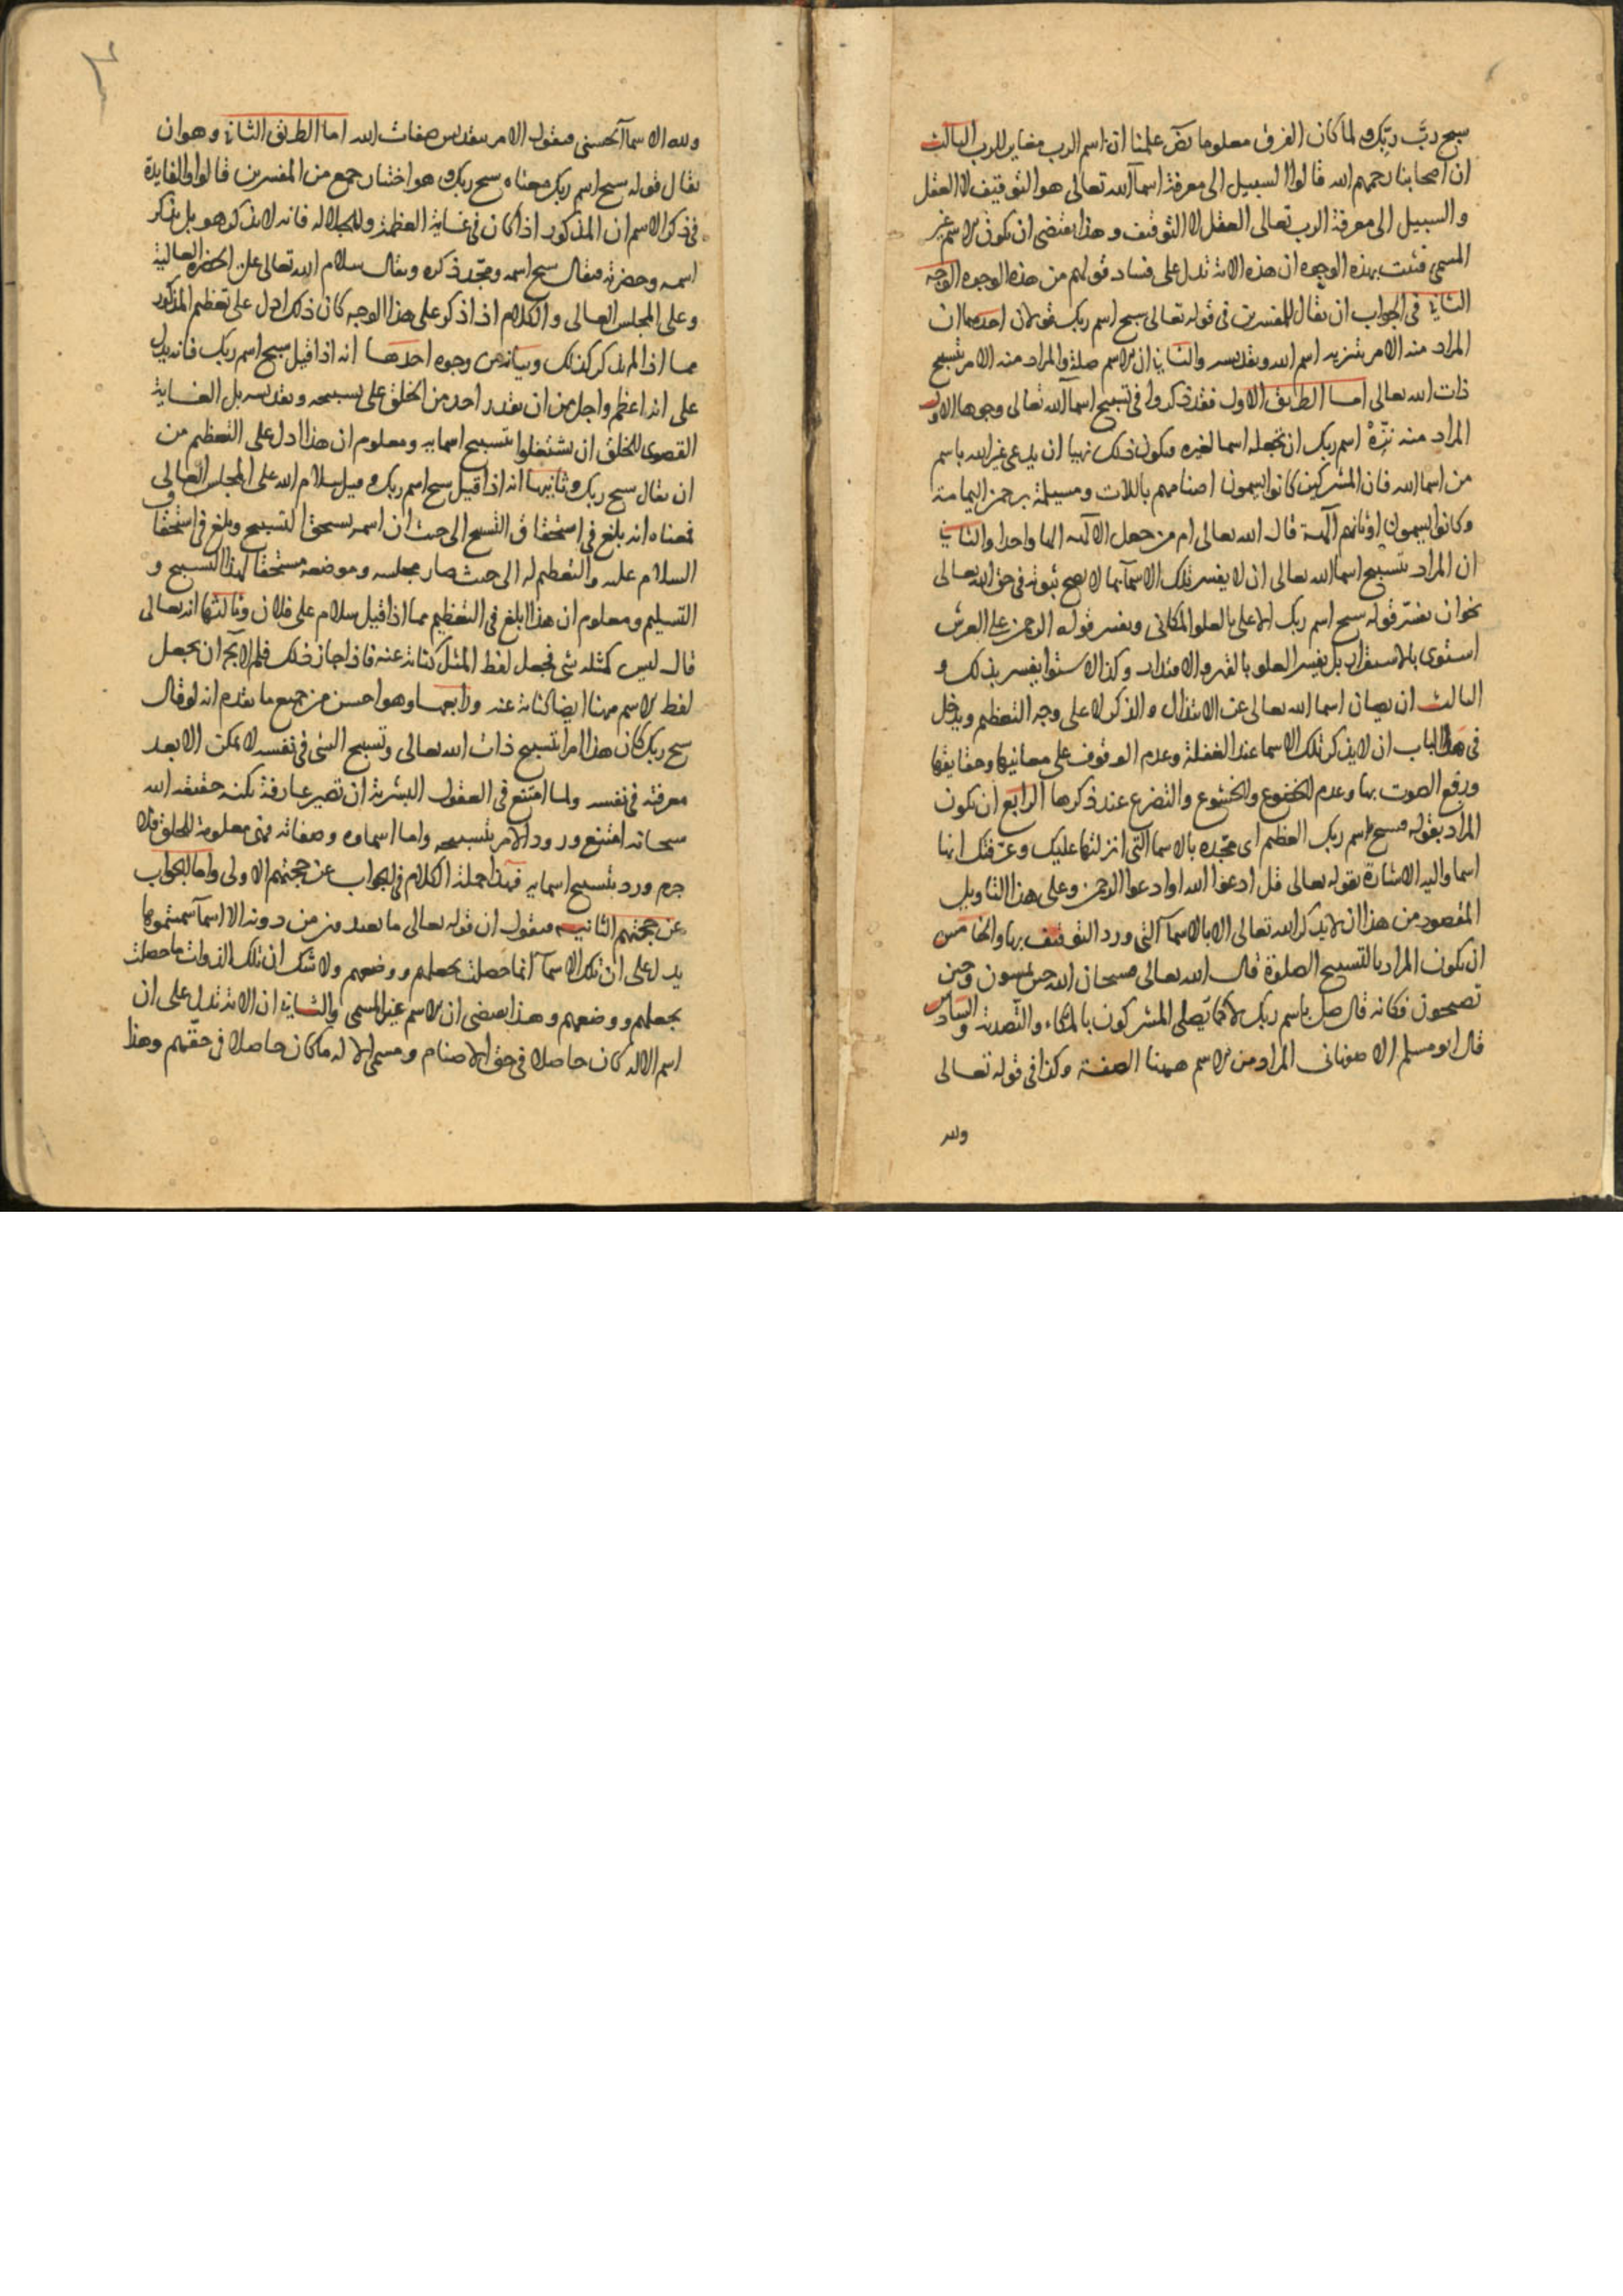 سبح رب ربك ولما كان الفرق معلوما بضر علمنا ان اسم الرب مغاير للرب الثالث
ان اصحابنا رحمهم الله قالوا السبيل الى معرفة اسماء الله تعالى هو التوقيف لا العقل
والسبيل الى معرفة الرب تعالى العقل لا التوقيف وهذا يقتضى ان يكون الاسم غير
المسمى فثبت بهذه الوجوه ان هذه الاية تدل على فساد قولهم من هذه الوجوه الوجه
الثانى فى الجواب ان يقال للمفسرين فى قوله تعالى سبح اسم ربك قولان احدهما ان
المراد منه الامر بتنزيه اسم الله وتقديسه والثانى ان الاسم صلة والمراد منه الامر بتسبيح
ذات الله تعالى اما الطريق الاول فقد ذكروا فى تسبيح اسماء الله تعالى وجوها الاول
المراد منه نزه اسم ربك ان تجعله اسما لغيره فيكون ذلك نهيا ان يدعى غير الله باسم
من اسما الله فان المشركين كانوا يسمون اصنامهم باللات ومسيلمة برحمن اليمامة
وكانوا يسمون اوثانهم آلهة قال الله تعالى ام من جعل الالهه الها واحدا والثانى
ان المراد بتسبيح اسما الله تعالى ان لا يفسر تلك الاسماء بما لا يصح ثبوته فى حق الله تعالى
نحو ان يفسر قوله سبح اسم ربك الاعلى بالعلو المكانى ويفسر قوله الرحمن على العرش
استوى بالاستقرار بل يفسر العلو بالقهر والاقتدار وكذا الاستوا يفسر بذلك و
الثالث ان يصان اسما الله تعالى عن الابتذال والذكر لا على وجه التعظيم ويدخل
فى هذا الباب ان لا يذكر تلك الاسما عند الغفلة وعدم الوقوف على معانيها وحقايقها
ورفع الصوت بها وعدم الخضوع والخشوع والتضرع عند ذكرها الرابع ان يكون
المراد بقوله فسبح باسم ربك العظيم اى مجده بالاسما التى انزلتها عليك وعرفتك انها
اسما واليه الاشارة بقوله تعالى قل ادعوا الله او ادعوا الرحمن وعلى هذا التاويل
المقصود من هذا ان لا يذكر الله تعالى الا بالاسماء التى ورد التوقيف بها والخامس
ان يكون المراد بالتسبيح الصلوة قال الله تعالى فسبحان الله حين تمسون وحين
تصبحون فكانه قال صل باسم ربك لا كما يصلى المشركون بالمكاء والتصدية والسادس
قال ابو مسلم الاصفهانى المراد من الاسم ههنا الصفة وكذا فى قوله تعالى
ولله
ولله الاسماء الحسنى فيقول الامر بتقديس صفات الله اما الطريق الثانى وهو ان
يقال قوله سبح اسم ربك معناه سبح ربك وهو اختيار جمع من المفسرين قالوا والفايدة
فى ذكر الاسم ان المذكور اذا كان فى غاية العظمة والجلالة فانه لا يذكر هو بل يذكر
اسمه وحضرته فيقال سبح اسمه ومجد ذكره ويقال سلام الله تعالى على الحضرة العالية
وعلى المجلس العالى والكلام اذا ذكر على هذا الوجه كان ذلك ادل على تعظيم المذكور
مما اذا لم يذكر كذلك وبيانه من وجوه احدها انه اذا قيل سبح اسم ربك فانه يدل
على انه اعظم واجل من ان يقدر احد من الخلق على تسبيحه وتقديسه بل الغاية
القصوى للخلق ان يشتغلوا بتسبيح اسمايه ومعلوم ان هذا ادل على التعظيم من
ان يقال سبح ربك وثانيها انه اذا قيل سبح اسم ربك وقيل سلام الله على المجلس العالى
فمعناه انه بلغ فى استحقاق التسبيح الى حيث ان اسمه يستحق التسبيح وبلغ فى استحقاق
السلام عليه والتعظيم له الى حيث صار مجلسه وموضعه مستحقا لهذا التسبيح و
التسليم ومعلوم ان هذا ابلغ فى التعظيم مما اذا قيل سلام على فلان وثالثها انه تعالى
قال ليس كمثله شى فجعل لفظ المثل كناية عنه فاذا جاز ذلك فلم لا يجوز ان يجعل
لفظ الاسم ههنا ايضا كناية عنه ورابعها وهو احسن من جميع ما تقدم انه لو قال
سبح ربك كان هذا امرا بتسبيح ذات الله تعالى وتسبيح الشى فى نفسه لا يمكن الا بعد
معرفته فى نفسه ولما امتنع فى العقول البشرية ان تصير عارفة بكنه حقيقة الله
سبحانه امتنع ورود الامر بتسبيحه واما اسماوه وصفاته فهى معلومة للخلق فلا
جرم ورد بتسبيح اسمايه فهذا جملة الكلام فى الجواب عن حجتهم الاولى واما الجواب
عن حجتهم الثانية فيقول ان قوله تعالى ما تعبدون من دونه الا اسماء سميتموها
يدل على ان تلك الاسماء انما حصلت بجعلهم ووضعهم ولا شك ان تلك الذوات ما حصلت
بجعلهم ووضعهم وهذا يقتضى ان الاسم غير المسمى والثانى ان الاية تدل على ان
اسم الاله كان حاصلا فى حق الاصنام ومسمى الاله ما كان حاصلا فى حقهم وهذا